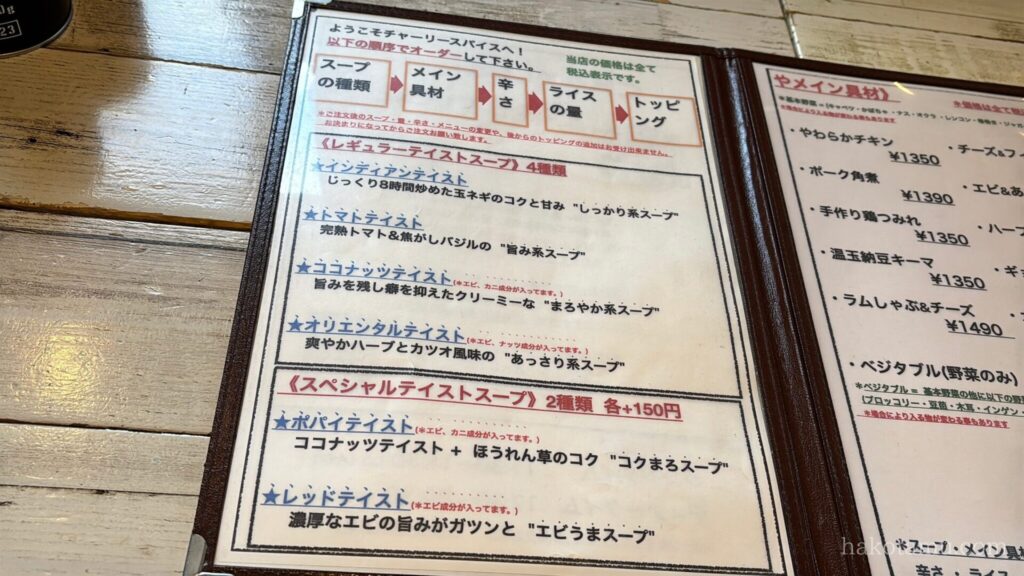 ようこそチャーリースパイスへ！
以下の順序でオーダーして下さい。
当店の価格は全て
税込表示です。
スープの種類
メイン具材
辛さ
ライスの量
トッピング
※ご注文後のスープ・量・辛さ・メニューの変更や、後からのトッピングの追加はお受け出来ません。
お決まりになってからご注文お願い致します。
《レギュラーテイストスープ》4種類
★インディアンテイスト
じっくり8時間炒めた玉ネギのコクと甘み "しっかり系スープ"
★トマトテイスト
完熟トマト&焦がしバジルの "旨み系スープ"
★ココナッツテイスト(※エビ、カニ成分が入ってます。)
旨みを残し癖を抑えたクリーミーな "まろやか系スープ"
★オリエンタルテイスト(※エビ、ナッツ成分が入ってます。)
爽やかハーブとカツオ風味の "あっさり系スープ"
《スペシャルテイストスープ》2種類 各+150円
★ポパイテイスト(※エビ、カニ成分が入ってます。)
ココナッツテイスト + ほうれん草のコク "コクまろスープ"
★レッドテイスト(※エビ成分が入ってます。)
濃厚なエビの旨みがガツンと "エビうまスープ"
やメイン具材》
※価格は全て
※基本野菜=(キャベツ・かぼちゃ・ナス・オクラ・レンコン・
※場合により入る物が変わる事もあります
・やわらかチキン
¥1350
・チーズ&フィ
・ポーク角煮
¥1390
・エビ&あ
・手作り鶏つみれ
¥1350
・ハーブ
・温玉納豆キーマ
¥1350
・ラムしゃぶ&チーズ
¥1490
・ベジタブル(野菜のみ)
※ベジタブル = 基本野菜の他に以下の野
(ブロッコリー・豆苗・木耳・インゲン・
※場合により入る物が変わる事もあります
※スープ・メイン具材
辛さ・ライス
23